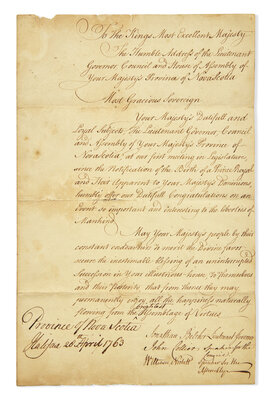 To The Kings Most Excellent Majesty
The Humble Address of the Lieutenant
Governor Council and House of Assembly of
Your Majesty's Province of Nova Scotia
Most Gracious Sovereign
Your Majesty's Dutifull and
Loyal Subjects The Lieutenant Governor Council
and Assembly of Your Majesty's Province of
Nova Scotia, at our first meeting in Legislature,
since the Notification of the Birth of a Prince Royal
and Heir Apparent to Your Majesty's Dominions
humbly offer our Dutifull Congratulations on an
Event so important and interesting to the liberties of
Mankind
May Your Majesty's people by their
constant endeavours to merit the Divine favor
secure the inestimable blessing of an uninterrupted
Succession in Your illustrious house to themselves
and their Posterity that from thence they may
permanently enjoy all the happiness naturally
flowing from the Assemblage of Virtues
Province of Nova Scotia
Halifax 26 April 1763
Jonathan Belcher Lieutenant Governor
John Collier Speaker for the
Council
William Nesbitt Speaker for the
Assembly